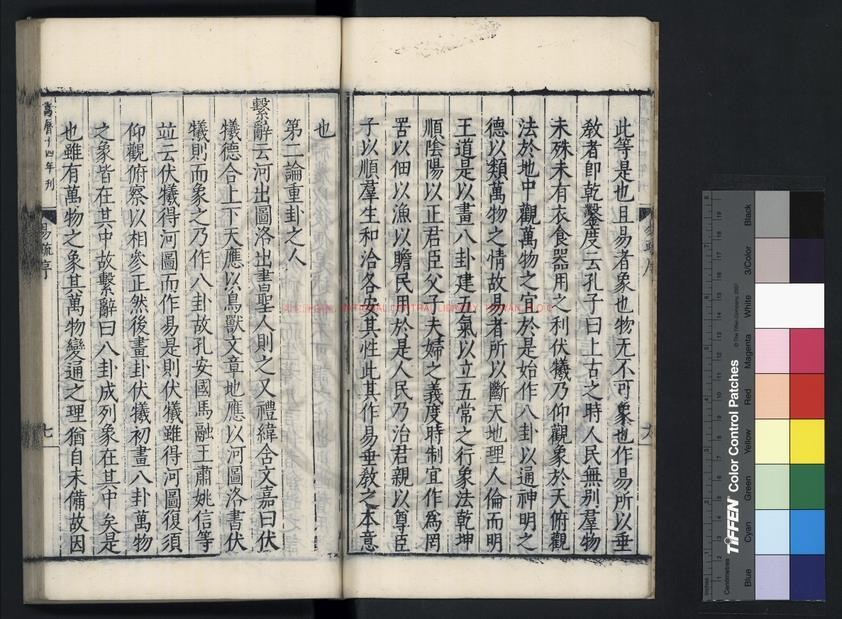 此等是也且易者象也物无不可象也作易所以垂
教者即乾鑿度云孔子曰上古之時人民無别羣物
未殊未有衣食器用之利伏犧乃仰觀象於天俯觀
法於地中觀萬物之宜於是始作八卦以通神明之
德以類萬物之情故易者所以斷天地理人倫而明
王道是以畫八卦建五氣以立五常之行象法乾坤
順陰陽以正君臣父子夫婦之義度時制宜作為罔
罟以佃以漁以贍民用於是人民乃治君親以尊臣
子以順羣生和洽各安其性此其作易垂教之本意
也
第二論重卦之人
繫辭云河出圖洛出書聖人則之又禮緯含文嘉曰伏
犧德合上下天應以鳥獸文章地應以河圖洛書伏
犧則而象之乃作八卦故孔安國馬融王肅姚信等
竝云伏犧得河圖而作易是則伏犧雖得河圖復須
仰觀俯察以相參正然後畫卦伏犧初畫八卦萬物
之象皆在其中故繫辭曰八卦成列象在其中矣是
也雖有萬物之象其萬物變通之理猶自未備故因
萬曆十四年刊
易疏序
七
NATIONAL CENTRAL LIBRARY
TIFFEN Color Control Patches
© The Tiffen Company, 2007
Centimetres
Inches
Blue
Cyan
Green
Yellow
Red
Magenta
White
3/Color
Black